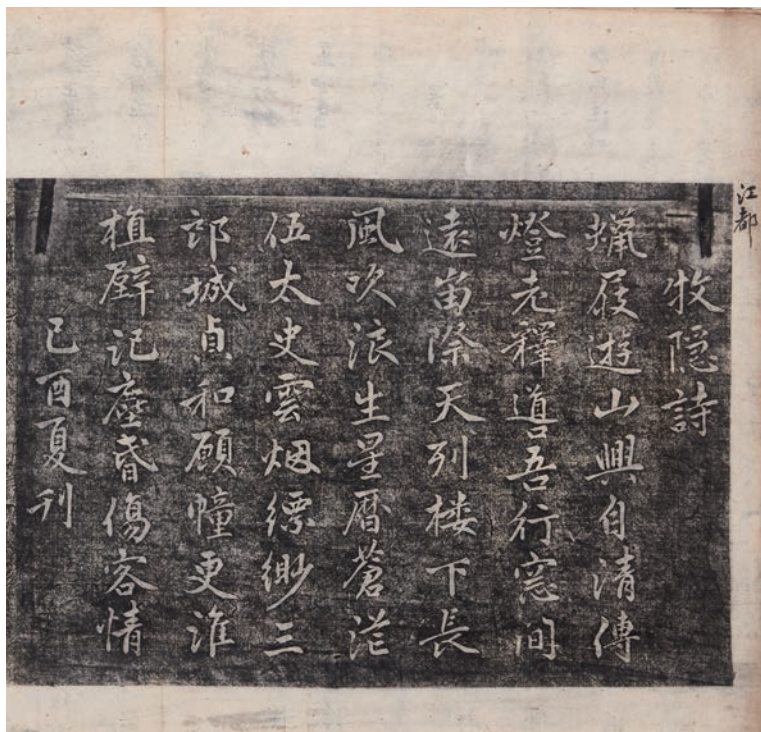 江都
牧隐詩
蠟屐遊山興自清傳
燈老釋導吾行窓間
遠峀際天列楼下長
風吹浪生星暦蒼茫
伍太史雲烟縹緲三
郎城貞和願幢更誰
植壁記塵昏傷客情
己酉夏刊